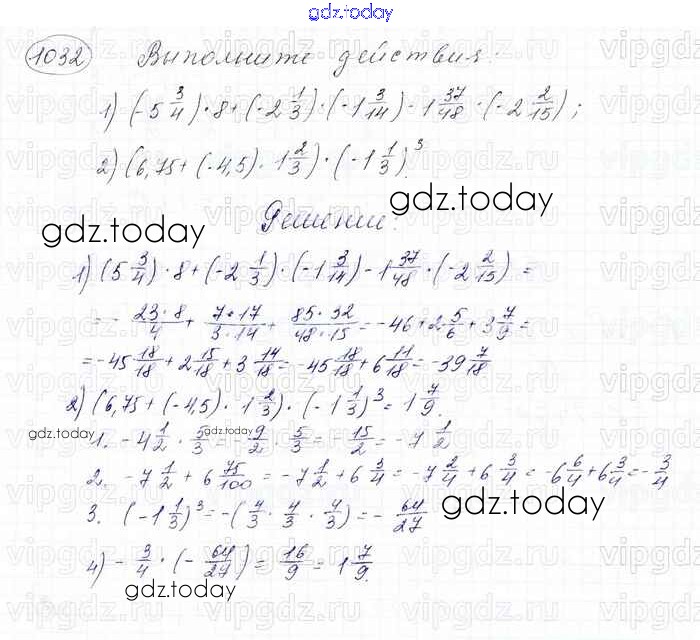 gdz.today
1032 Выполните действия.
1) (-5 3/4) · 8 + (-2 1/3) · (-1 3/14) - 1 37/48 · (-2 2/15);
2) (6,75 + (-4,5) · 1 2/3) · (-1 1/3)³
gdz.today
Решение.
gdz.today
1) (5 3/4) · 8 + (-2 1/3) · (-1 3/14) - 1 37/48 · (-2 2/15) =
= - 23·8/4 + 7·17/3·14 + 85·32/48·15 = -46 + 2 5/6 + 3 7/9 =
= -45 18/18 + 2 15/18 + 3 14/18 = -45 18/18 + 6 11/18 = -39 7/18
2) (6,75 + (-4,5) · 1 2/3) · (-1 1/3)³ = 1 7/9.
gdz.today
1. -4 1/2 · 5/3 = - 9/2 · 5/3 = - 15/2 = -7 1/2
2. -7 1/2 + 6 75/100 = -7 1/2 + 6 3/4 = -7 2/4 + 6 3/4 = -6 6/4 + 6 3/4 = - 3/4
3. (-1 1/3)³ = -(4/3 · 4/3 · 4/3) = - 64/27
gdz.today
4) - 3/4 · (- 64/27) = 16/9 = 1 7/9.
gdz.today